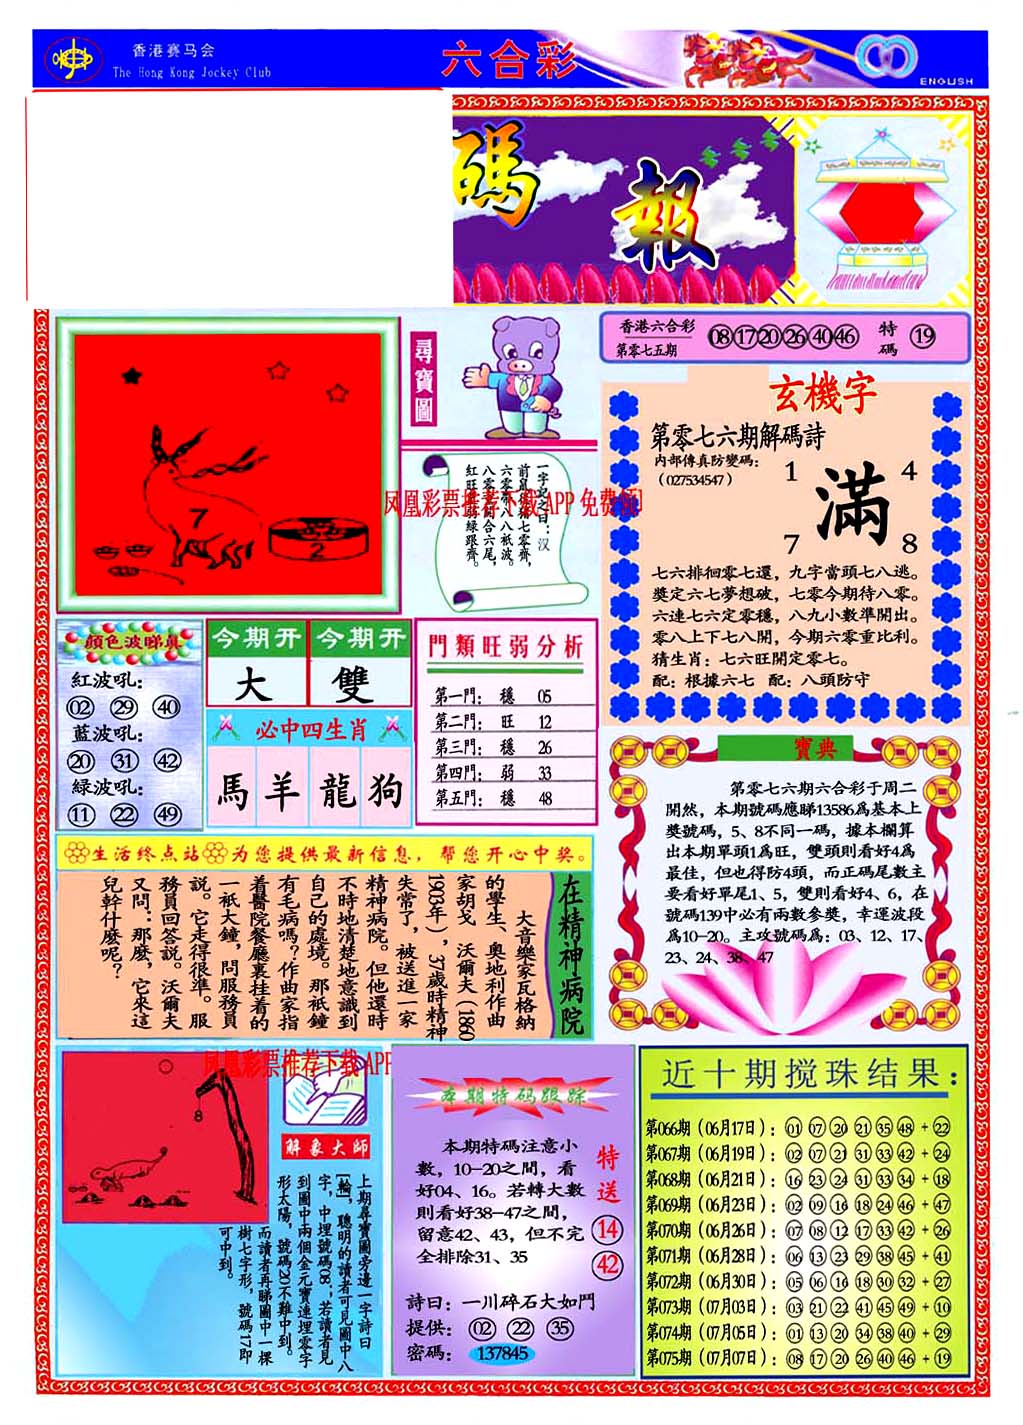 香港赛马会
The Hong Kong Jockey Club
六合彩
ENGLISH
碼 報
尋寶圖
7
2
一字記之曰：汉
前鼠後猪七零齊，
八零右開合六尾，
紅旺藍弱綠跟齊。
凤凰彩票推荐下载 APP 免费领
香港六合彩
第零七五期
08 17 20 26 40 46
特碼 19
玄機字
第零七六期解碼詩
内部傳真防變碼：
（027534547）
1 4
滿
7 8
七六排徊零七還，九字當頭七八逃。
獎定六七夢想破，七零今期待八零。
六連七六定零穩，八九小數準開出。
零八上下七八開，今期六零重比利。
猜生肖：七六旺開定零七。
配：根據六七 配：八頭防守
顔色波睇真
紅波吼：
02 29 40
藍波吼：
20 31 42
緑波吼：
11 22 49
今期开 今期开
大 雙
必中四生肖
馬 羊 龍 狗
門類旺弱分析
第一門： 穩 05
第二門： 旺 12
第三門： 穩 26
第四門： 弱 33
第五門： 穩 48
寶典
第零七六期六合彩于周二
開然，本期號碼應睇13586爲基本上
獎號碼，5、8不同一碼，據本欄算
出本期單頭1爲旺，雙頭則看好4爲
最佳，但也得防4頭，而正碼尾數主
要看好單尾1、5，雙則看好4、6，在
號碼139中必有兩數參獎，幸運波段
爲10-20。主攻號碼爲：03、12、17、
23、24、38、47
生活终点站 为您提供最新信息，帮您开心中奖。
在精神病院
大音樂家瓦格纳
的學生、奥地利作曲
家胡戈 沃爾夫（1860
1903年），37歲時精神
失常了，被送進一家
精神病院。但他還時
不時地清楚地意識到
自己的處境。那衹鐘
有毛病嗎？作曲家指
着醫院餐廳裏挂着的
一衹大鐘，問服務員
説。它走得很準。服
務員回答説。沃爾夫
又問：那麽，它來這
兒幹什麽呢？
凤凰彩票推荐下载 APP
8
解象大師
上期尋寶圖旁邊一字詩曰
[輪]，聰明的讀者可見圖中八
字，中埋號碼08；若讀者見
到圖中兩個金元寶連埋零字
形太陽，號碼20不難中到。
而讀者再睇圖中一棵
樹七字形，號碼17即
可中到。
本期特码跟踪
本期特碼注意小
數，10-20之間，看
好04、16。若轉大數
則看好38-47之間，
留意42、43，但不完
全排除31、35
特送
14
42
詩曰：一川碎石大如鬥
提供： 02 22 35
密碼： 137845
近十期搅珠结果：
第066期（06月17日）：01 07 20 21 35 48 + 22
第067期（06月19日）：02 07 21 31 33 42 + 24
第068期（06月21日）：16 23 24 31 33 34 + 18
第069期（06月23日）：02 09 16 18 24 46 + 47
第070期（06月26日）：07 08 12 17 33 42 + 26
第071期（06月28日）：06 13 23 29 38 45 + 41
第072期（06月30日）：05 06 16 18 30 32 + 27
第073期（07月03日）：03 21 22 41 45 49 + 10
第074期（07月05日）：01 13 20 34 38 40 + 29
第075期（07月07日）：08 17 20 26 40 46 + 19